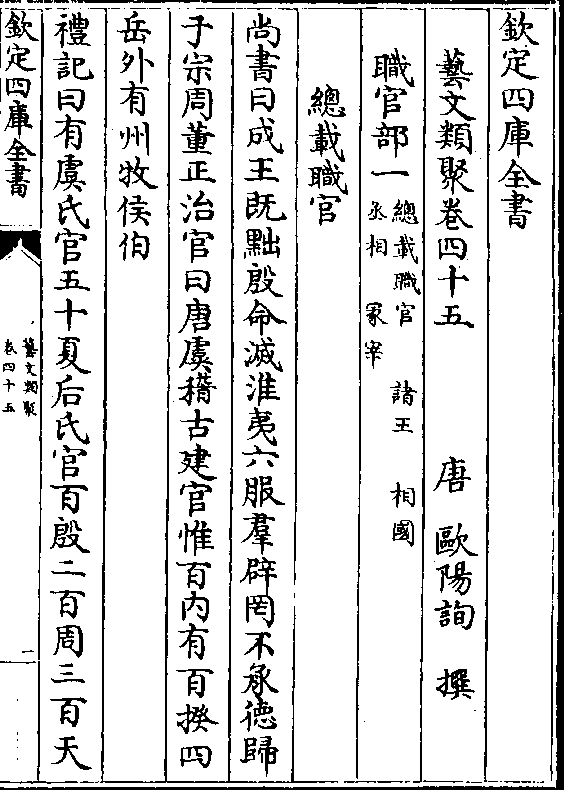 欽定四庫全書
藝文類聚卷四十五　唐　歐陽詢　撰
職官部一
總載職官　諸王　相國
丞相　冡宰
總載職官
尚書曰成王既黜殷命滅淮夷六服羣辟罔不承德歸
于宗周董正治官曰唐虞稽古建官惟百内有百揆四
岳外有州牧侯伯
禮記曰有虞氏官五十夏后氏官百殷二百周三百天
欽定四庫全書
藝文類聚
卷四十五
一